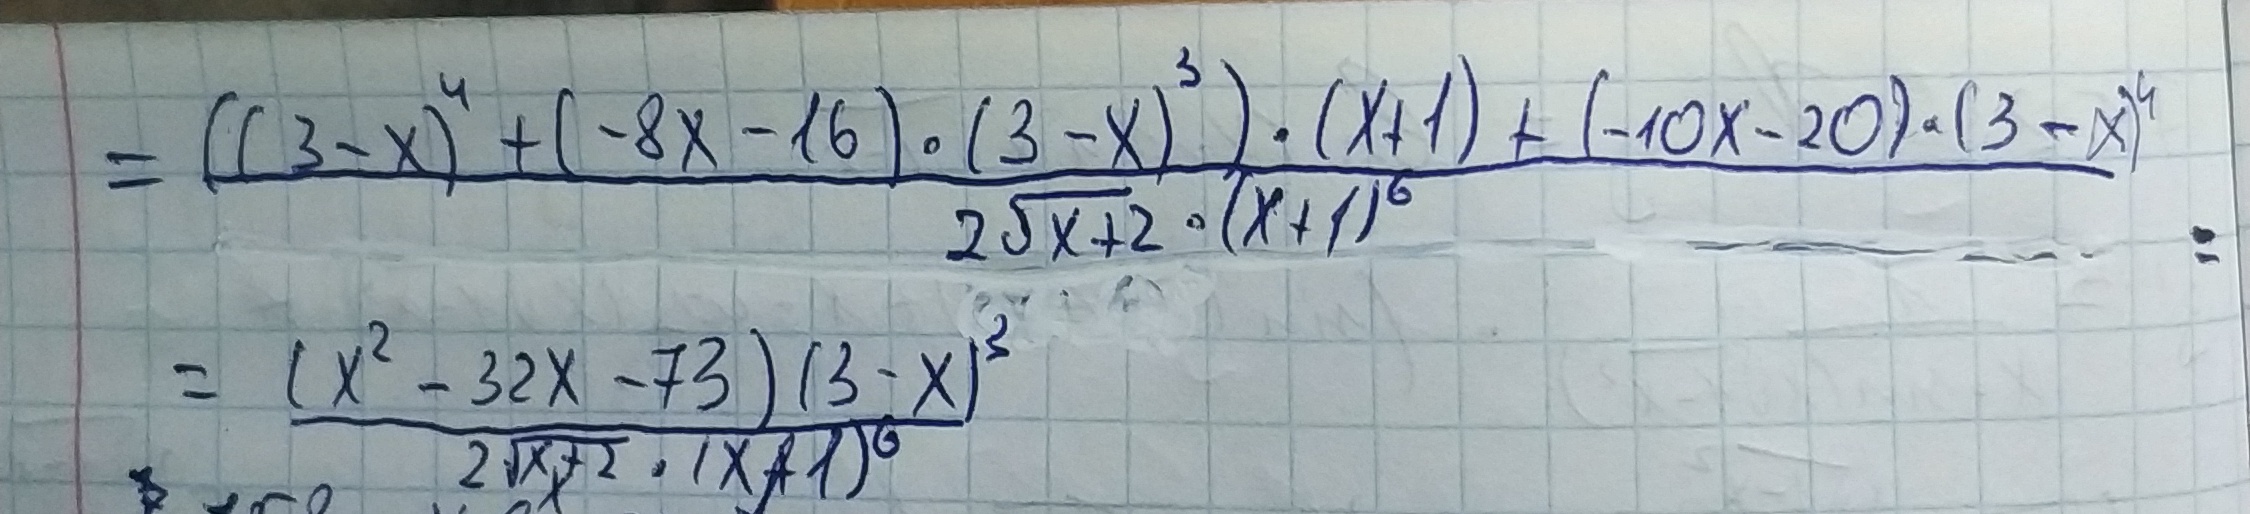 = ((3-x)^4 + (-8x-16)·(3-x)^3)·(x+1) + (-10x-20)·(3-x)^4 / 2√(x+2)·(x+1)^6 =
= (x^2 - 32x - 73)(3-x)^3 / 2√(x+2)·(x+1)^6